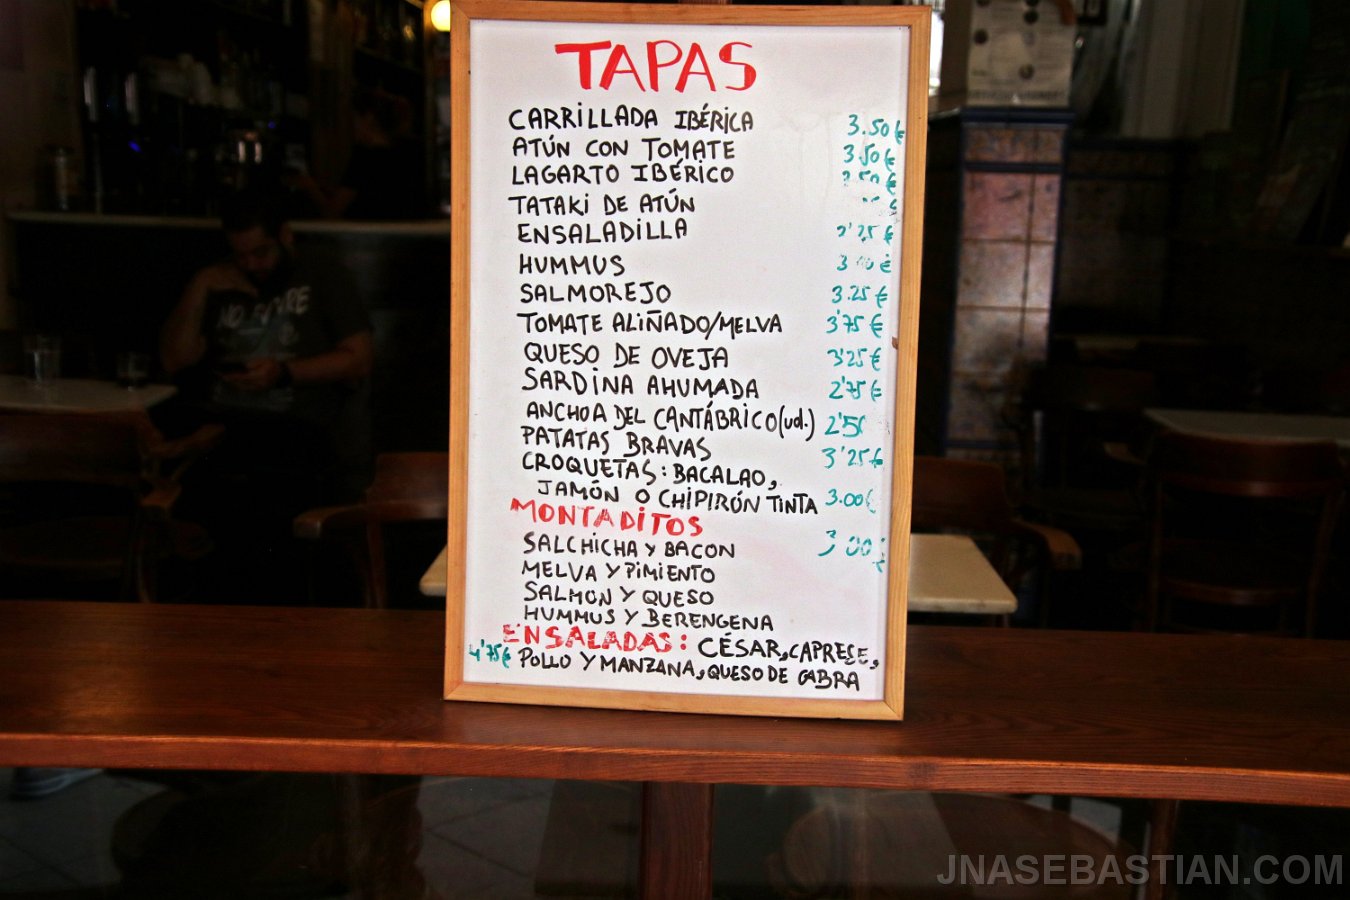 TAPAS
CARRILLADA IBÉRICA 3.50€
ATÚN CON TOMATE 3.50€
LAGARTO IBÉRICO
TATAKI DE ATÚN
ENSALADILLA 2'25€
HUMMUS
SALMOREJO 3.25€
TOMATE ALIÑADO/MELVA 3'75€
QUESO DE OVEJA 3'25€
SARDINA AHUMADA 2'75€
ANCHOA DEL CANTÁBRICO(ud.)
PATATAS BRAVAS 3'25€
CROQUETAS: BACALAO,
JAMÓN O CHIPIRÓN TINTA 3.00€
MONTADITOS
SALCHICHA Y BACON
MELVA Y PIMIENTO
SALMON Y QUESO
HUMMUS Y BERENGENA
ENSALADAS: CÉSAR, CAPRESE,
4'75€ POLLO Y MANZANA, QUESO DE CABRA
JNASEBASTIAN.COM